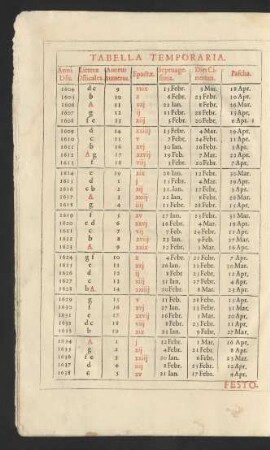 TABELLA TEMPORARIA.
Anni Dñi. Litteræ Dñicales. Aureus numerus. Epactæ. Septuagesima. Dies Cinerum. Pascha.
1604 d c 9 xxix 15 Febr. 3 Mar. 18 Apr.
1605 b 10 x 6 Febr. 23 Febr. 10 Apr.
1606 A 11 xxj 22 Ian. 8 Febr. 26 Mar.
1607 g 12 ij 11 Febr. 28 Febr. 15 Apr.
1608 f e 13 xiij 3 Febr. 20 Febr. 6 Apr.
1609 d 14 xxiiij 15 Febr. 4 Mar. 19 Apr.
1610 c 15 v 7 Febr. 24 Febr. 11 Apr.
1611 b 16 xvj 30 Ian. 16 Febr. 3 Apr.
1612 A g 17 xxvij 19 Febr. 7 Mar. 22 Apr.
1613 f 18 viij 3 Febr. 20 Febr. 7 Apr.
1614 e 19 xix 26 Ian. 12 Febr. 30 Mar.
1615 d 1 j 15 Febr. 4 Mar. 19 Apr.
1616 c b 2 xij 31 Ian. 17 Febr. 3 Apr.
1617 A 3 xxiij 22 Ian. 8 Febr. 26 Mar.
1618 g 4 iiij 11 Febr. 28 Febr. 15 Apr.
1619 f 5 xv 27 Ian. 13 Febr. 31 Mar.
1620 e d 6 xxvj 16 Febr. 4 Mar. 19 Apr.
1621 c 7 vij 7 Febr. 24 Febr. 11 Apr.
1622 b 8 xviij 23 Ian. 9 Febr. 27 Mar.
1623 A 9 xxix 12 Febr. 1 Mar. 16 Apr.
1624 g f 10 x 4 Febr. 21 Febr. 7 Apr.
1625 e 11 xxj 26 Ian. 12 Febr. 30 Mar.
1626 d 12 ij 8 Febr. 25 Febr. 12 Apr.
1627 c 13 xiij 31 Ian. 17 Febr. 4 Apr.
1628 b A 14 xxiiij 20 Febr. 8 Mar. 23 Apr.
1629 g 15 v 11 Feb. 28 Febr. 15 Apr.
1630 f 16 xvj 27 Ian. 13 Febr. 31 Mar.
1631 e 17 xxvij 16 Febr. 5 Mar. 20 Apr.
1632 d c 18 viij 8 Febr. 25 Febr. 11 Apr.
1633 b 19 xix 23 Ian. 9 Febr. 27 Mar.
1634 A 1 j 12 Febr. 1 Mar. 16 Apr.
1635 g 2 xij 4 Febr. 21 Febr. 8 Apr.
1636 f e 3 xxiij 20 Ian. 6 Febr. 23 Mar.
1637 d 4 iiij 8 Febr. 25 Febr. 12 Apr.
1638 c 5 xv 31 Ian. 17 Febr. 4 Apr.
FESTO.